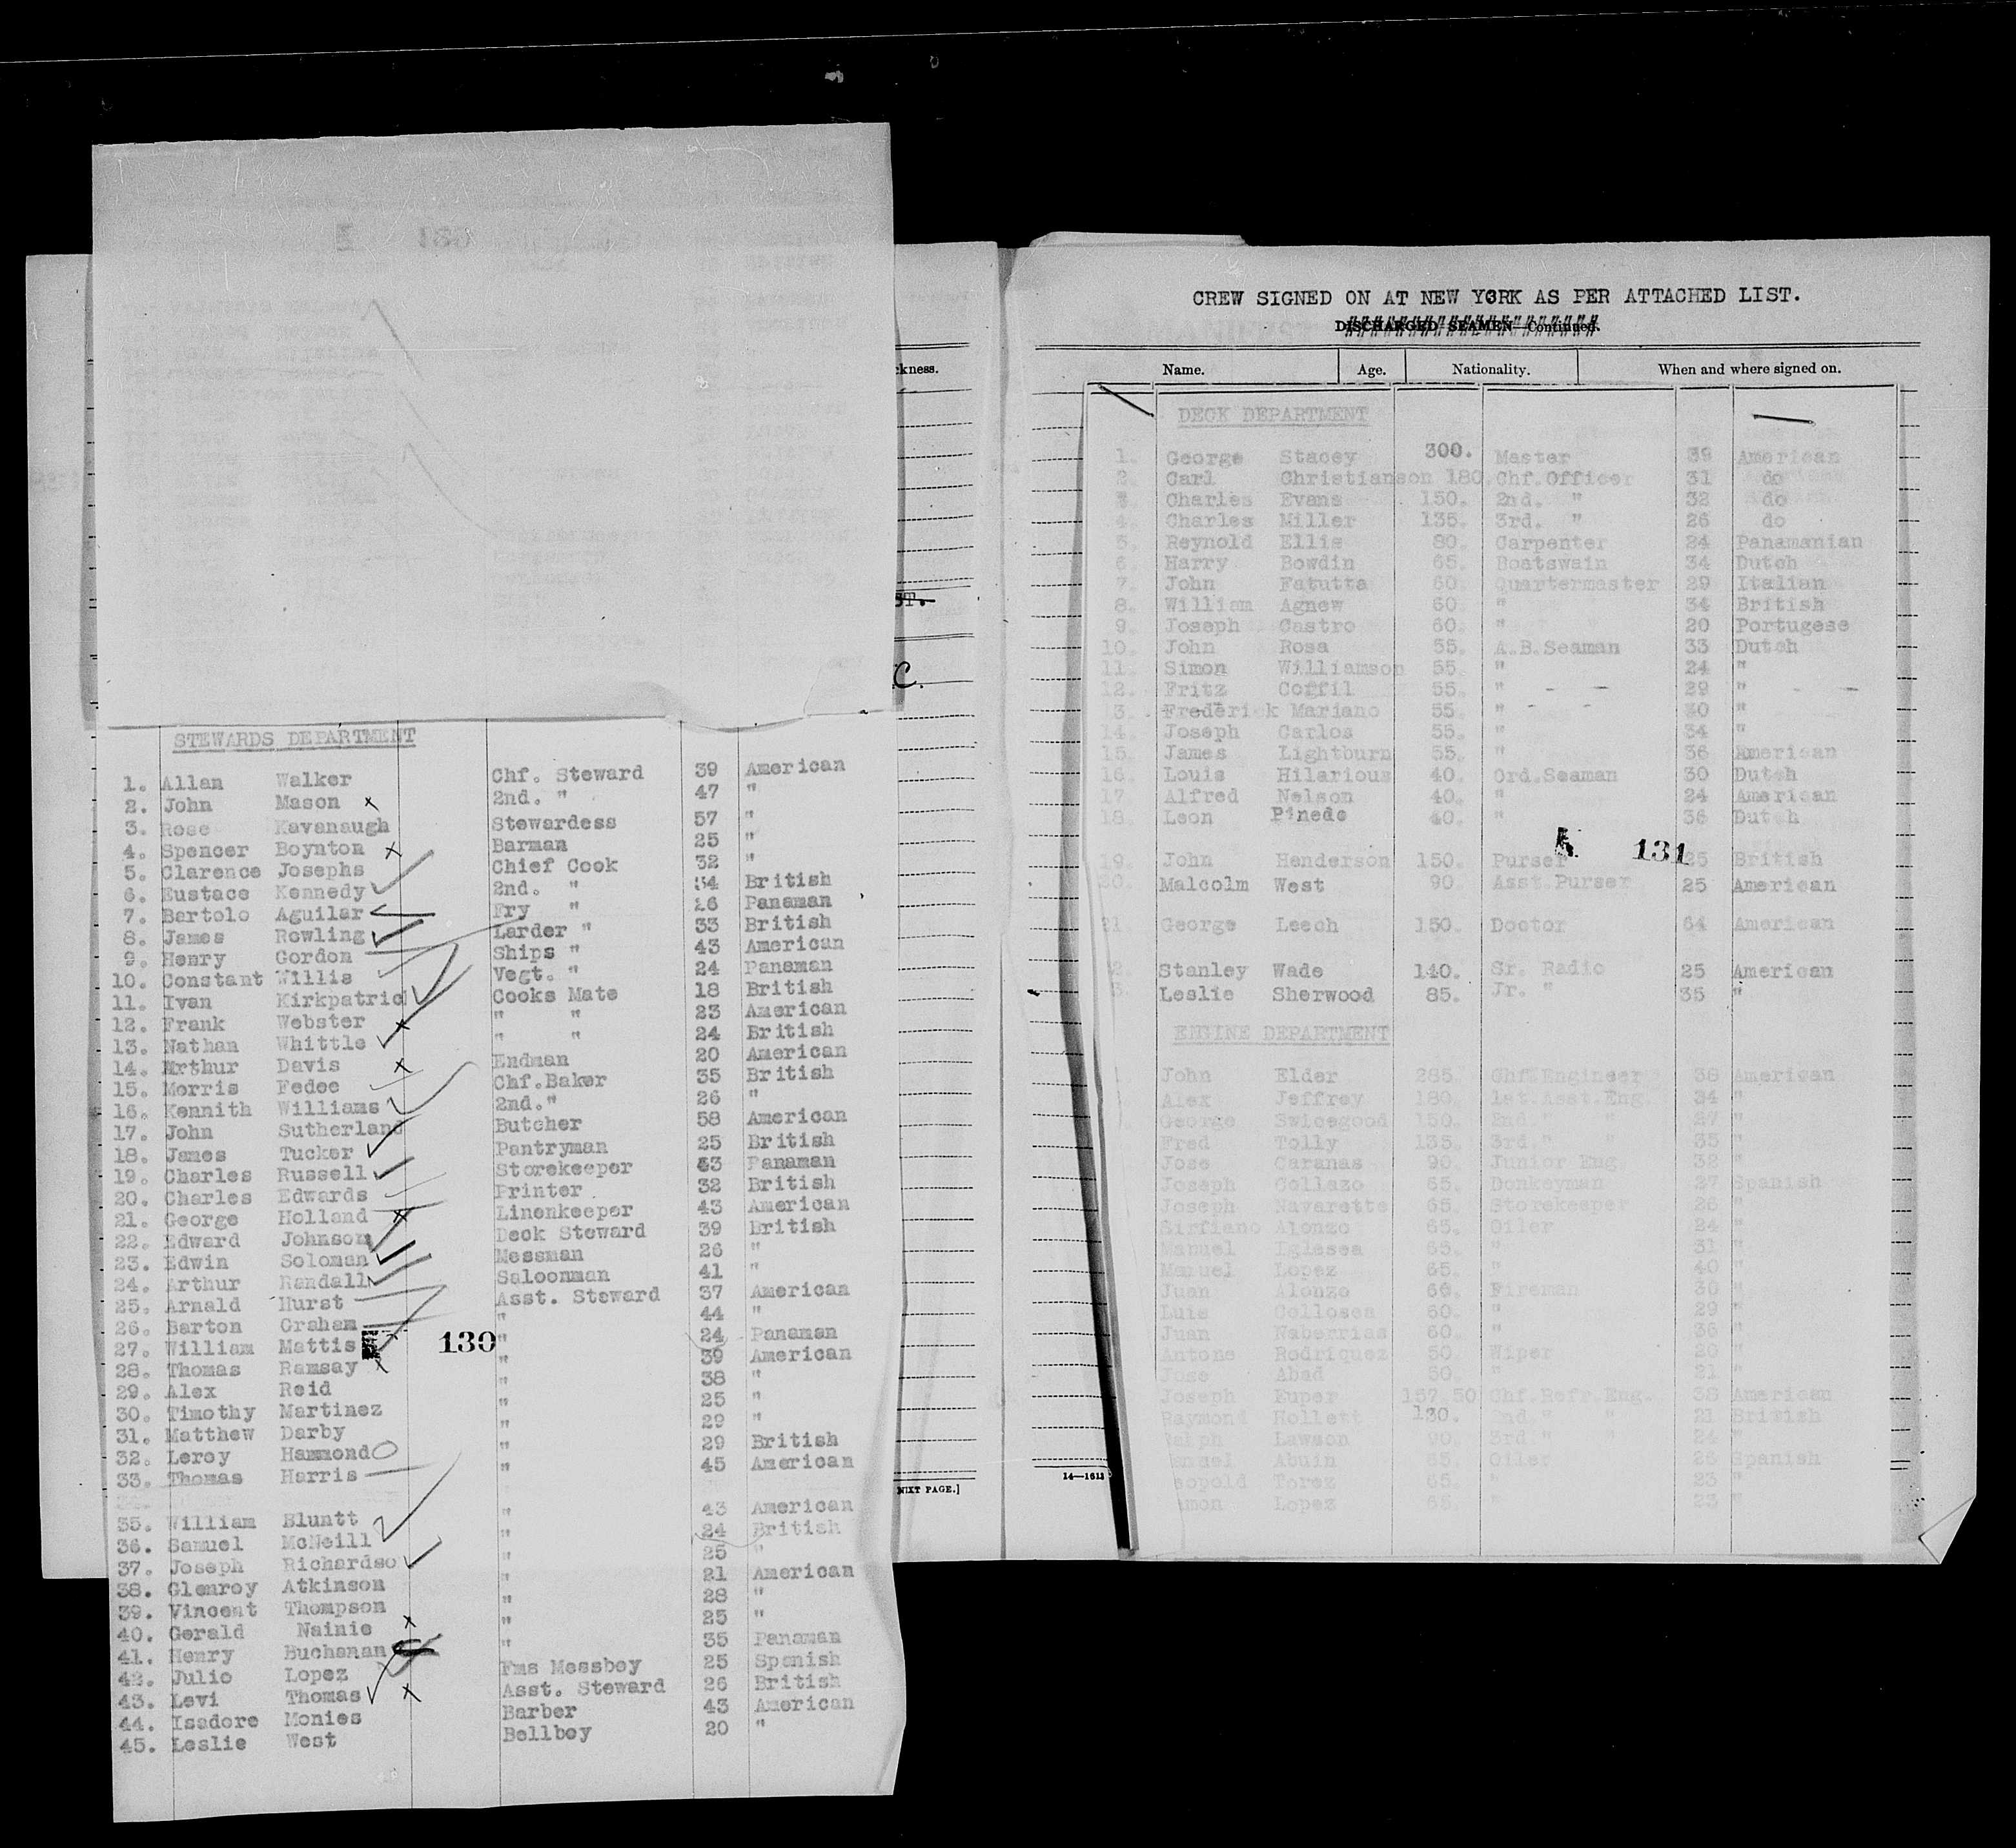 STEWARDS DEPARTMENT
1. Allan Walker Chf. Steward 39 American
2. John Mason x 2nd. " 47 "
3. Rose Kavanaugh Stewardess 57 "
4. Spencer Boynton x Barman 25 "
5. Clarence Josephs Chief Cook 32 "
6. Eustace Kennedy 2nd. " 34 British
7. Bartolo Aguilar Fry " 26 Panaman
8. James Rowling Larder " 33 British
9. Henry Gordon Ships " 43 American
10. Constant Willis Vegt. " 24 Panaman
11. Ivan Kirkpatric Cooks Mate 18 British
12. Frank Webster x " " 23 American
13. Nathan Whittle " " 24 British
14. Arthur Davis x Endman 20 American
15. Morris Fedee Chf.Baker 35 British
16. Kennith Williams 2nd." 26 "
17. John Sutherland Butcher 58 American
18. James Tucker Pantryman 25 British
19. Charles Russell Storekeeper 53 Panaman
20. Charles Edwards Printer 32 British
21. George Holland x Linenkeeper 43 American
22. Edward Johnson Deck Steward 39 British
23. Edwin Soloman Messman 26 "
24. Arthur Randall Saloonman 41 "
25. Arnald Hurst Asst. Steward 37 American
26. Barton Graham " 44 "
27. William Mattis 130 " 24 Panaman
28. Thomas Ramsay x " 39 American
29. Alex Reid " 38 "
30. Timothy Martinez " 25 "
31. Matthew Darby " 29 "
32. Leroy Hammond " 29 British
33. Thomas Harris " 45 American
35. William Bluntt " 43 American
36. Samuel McNeill " 24 British
37. Joseph Richardso " 25 "
38. Glenroy Atkinson " 21 American
39. Vincent Thompson " 28 "
40. Gerald Nainie x " 25 "
41. Henry Buchanan " 35 Panaman
42. Julio Lopez Fms Messboy 25 Spanish
43. Levi Thomas x Asst. Steward 26 British
44. Isadore Monies Barber 43 American
45. Leslie West Bellboy 20 "
kness.
ST.
C.
NEXT PAGE.]
CREW SIGNED ON AT NEW YORK AS PER ATTACHED LIST.
DISCHARGED SEAMEN—Continued.
Name. Age. Nationality. When and where signed on.
DECK DEPARTMENT
1. George Stacey 300. Master 39 American
2. Carl Christianson 180. Chf.Officer 31 do
3. Charles Evans 150. 2nd. " 32 do
4. Charles Miller 135. 3rd. " 26 do
5. Reynold Ellis 80. Carpenter 24 Panamanian
6. Harry Bowdin 65. Boatswain 34 Dutch
7. John Fatutta 60. Quartermaster 29 Italian
8. William Agnew 60. " 34 British
9. Joseph Castro 60. " 20 Portugese
10. John Rosa 55. A.B.Seaman 33 Dutch
11. Simon Williamson 55. " 24 "
12. Fritz Coffil 55. " 29 "
13. Frederick Mariano 55. " 30 "
14. Joseph Carlos 55. " 34 "
15. James Lightburn 55. " 36 American
16. Louis Hilarious 40. Ord.Seaman 30 Dutch
17. Alfred Nelson 40. " 24 American
18. Leon Pinedo 40. " 36 Dutch
131
19. John Henderson 150. Purser 25 British
20. Malcolm West 90. Asst.Purser 25 American
21. George Leech 150. Doctor 64 American
2. Stanley Wade 140. Sr. Radio 25 American
3. Leslie Sherwood 85. Jr. " 35 "
ENGINE DEPARTMENT
John Elder 285. Chf.Engineer 38 American
Alex Jeffrey 180. 1st.Asst.Eng. 34 "
George Swicegood 150. 2nd. " " 27 "
Fred Tolly 135. 3rd. " " 35 "
Jose Caranas 90. Junior Eng. 32 "
Joseph Collazo 65. Donkeyman 27 Spanish
Joseph Navarette 65. Storekeeper 26 "
Sirfiano Alonzo 65. Oiler 24 "
Manuel Iglesea 65. " 31 "
Manuel Lopez 65. " 40 "
Juan Alonzo 60. Fireman 36 "
Luis Collosea 60. " 29 "
Juan Naberrias 60. " 36 "
Antone Rodriquez 50. Wiper 20 "
Jose Abad 50. " 21 "
Joseph Euper 157.50 Chf.Refr.Eng. 38 American
Raymond Hollett 130. 2nd " " 21 British
Ralph Lawson 90. 3rd " " 24 "
Abuin 65. Oiler 26 Spanish
eopold Torez 65. " 23 "
amon Lopez 65. " 23 "